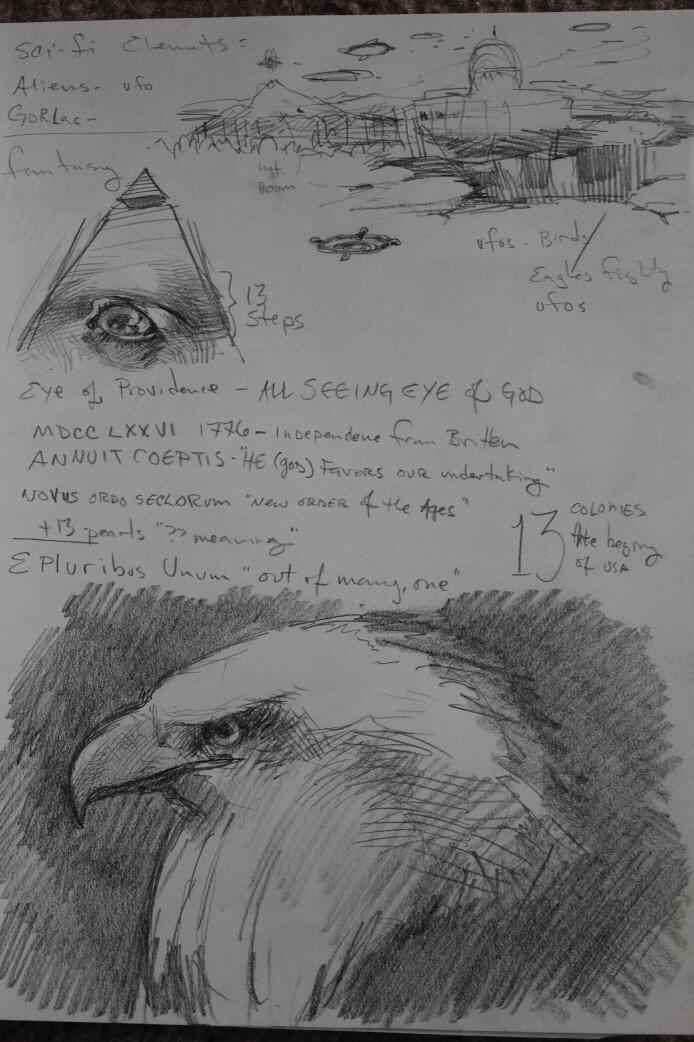 Sci-fi Elements:
Aliens - ufo
GORLac -
fantasy
sgt.
Boom
ufos - Birds
Eagles fighty
ufos
13
Steps
Eye of Providence - ALL SEEING EYE of GOD
MDCCLXXVI 1776 - Independene from Britten
ANNUIT COEPTIS - "HE (GOD) FAVORS OUR undertaking"
NOVUS ORDO SECLORUM "NEW ORDER of the Ages"
+13 pearls "?? meaning"
13 COLONIES
the beging
of USA
E Pluribus Unum "out of many, one"